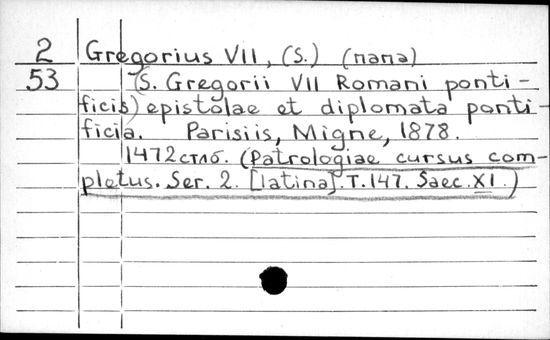 2 Gregorius VII, (S.) (папа)
53 (S. Gregorii VII Romani ponti-
ficis) epistolae et diplomata ponti-
ficia. Parisiis, Migne, 1878.
1472 стлб. (Patrologiae cursus com-
pletus. Ser. 2. [latina]. T. 147. Saec. XI.)